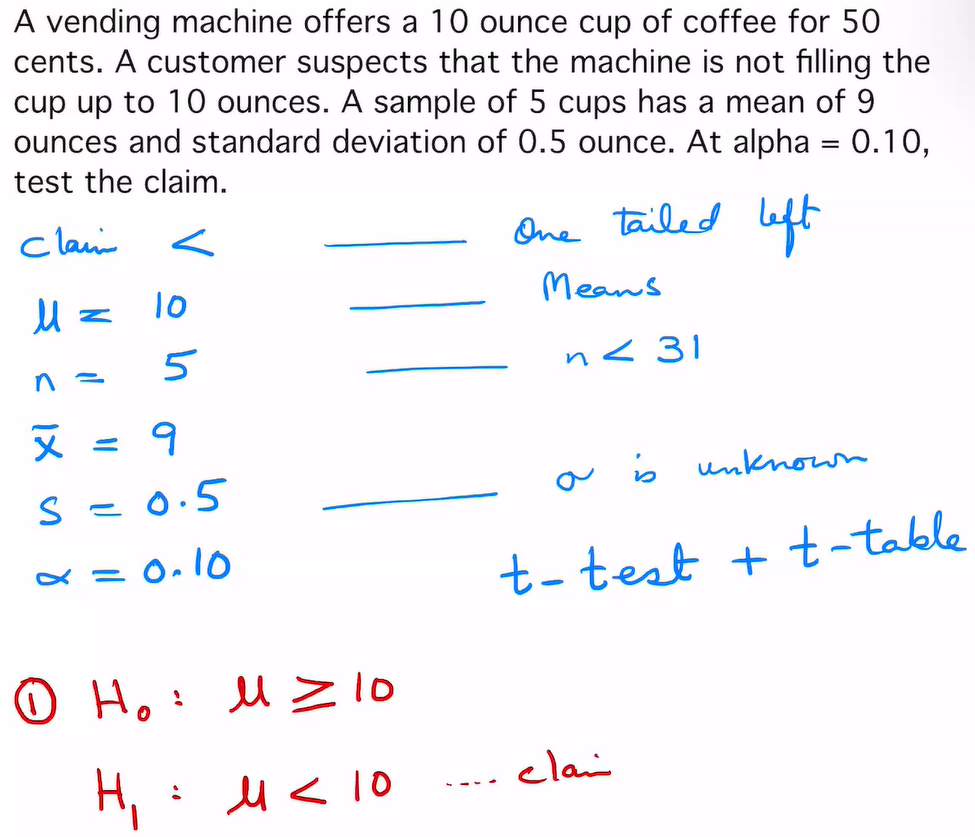 A vending machine offers a 10 ounce cup of coffee for 50
cents. A customer suspects that the machine is not filling the
cup up to 10 ounces. A sample of 5 cups has a mean of 9
ounces and standard deviation of 0.5 ounce. At alpha = 0.10,
test the claim.
claim < —— One tailed left
μ = 10 —— Means
n = 5 —— n < 31
x̄ = 9
s = 0.5 —— σ is unknown
α = 0.10 t-test + t-table
① H₀ : μ ≥ 10
H₁ : μ < 10 .... claim